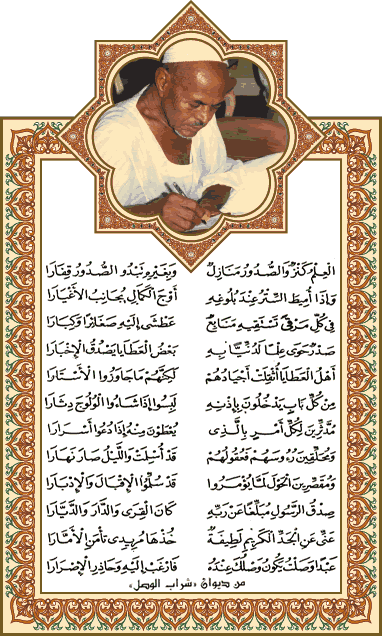 العِلمُ كَنْزٌ وَالصُّدُورُ مَنَازِلُ وَبِغَيْرِهِ تَبْدُو الصُّدُورُ قِفَارَا
وَإِذَا أُمِيطَ السِّتْرُ عِنْدَ بُلُوغِهِ أَوْجَ الكَمَالِ يُجَانِبُ الأَغْيَارَا
فِي كُلِّ مَرْقَى تَسْتَقِيهِ مَنَابِحٌ عَطْشَى إِلَيْهِ صَغَائِرًا وَكِبَارَا
صَدْرٌ حَوَى عِلْمًا لَدُنِّيًّا بِهِ بَعْضُ العَطَايَا يَصْدُقُ الإِخْبَارَا
أَهْلُ العَطَايَا أُثْقِلَتْ أَجْيَادُهُمْ لَكِنَّهُمْ مَا جَاوَزُوا الأَسْتَارَا
مِنْ كُلِّ بَابٍ يَدْخُلُونَ بِإِذْنِهِ لَبِسُوا إِذَا شَاءُوا الوُلُوجَ دِثَارَا
مُدَّثِّرِينَ لِكُلِّ أَمْرٍ بِالَّذِي يُعْطَوْنَ مِنْهُ إِذَا دُعُوا أَسْرَارَا
وَمُحَلِّقِينَ رُءُوسَهُمْ فَعُقُولُهُمْ قَدْ أُسْلِتَتْ وَاللَّيْلُ صَارَ نَهَارَا
وَمُقَصِّرِينَ الحَوْلَ لَمَّا يُؤْمَرُوا قَدْ سُلِّمُوا الإِقْبَالَ وَالإِدْبَارَا
صِدْقُ الرَّسُولِ مُبَلِّغًا عَنْ رَبِّهِ كَانَ القِرَى وَالدَّارَ وَالدَّيَّارَا
عَنِّي عَنِ الجَدِّ الكَرِيمِ لَطِيفَةٌ خُذْهَا مُرِيدِي تَأْمَنِ الأَشْرَارَا
عَبْدًا وَصَلْتَ يَكُونُ وَصْلُكَ عِنْدَهُ فَارْغَبْ إِلَيْهِ وَحَاذِرِ الإِصْرَارَا
من ديوان «شراب الوصل»